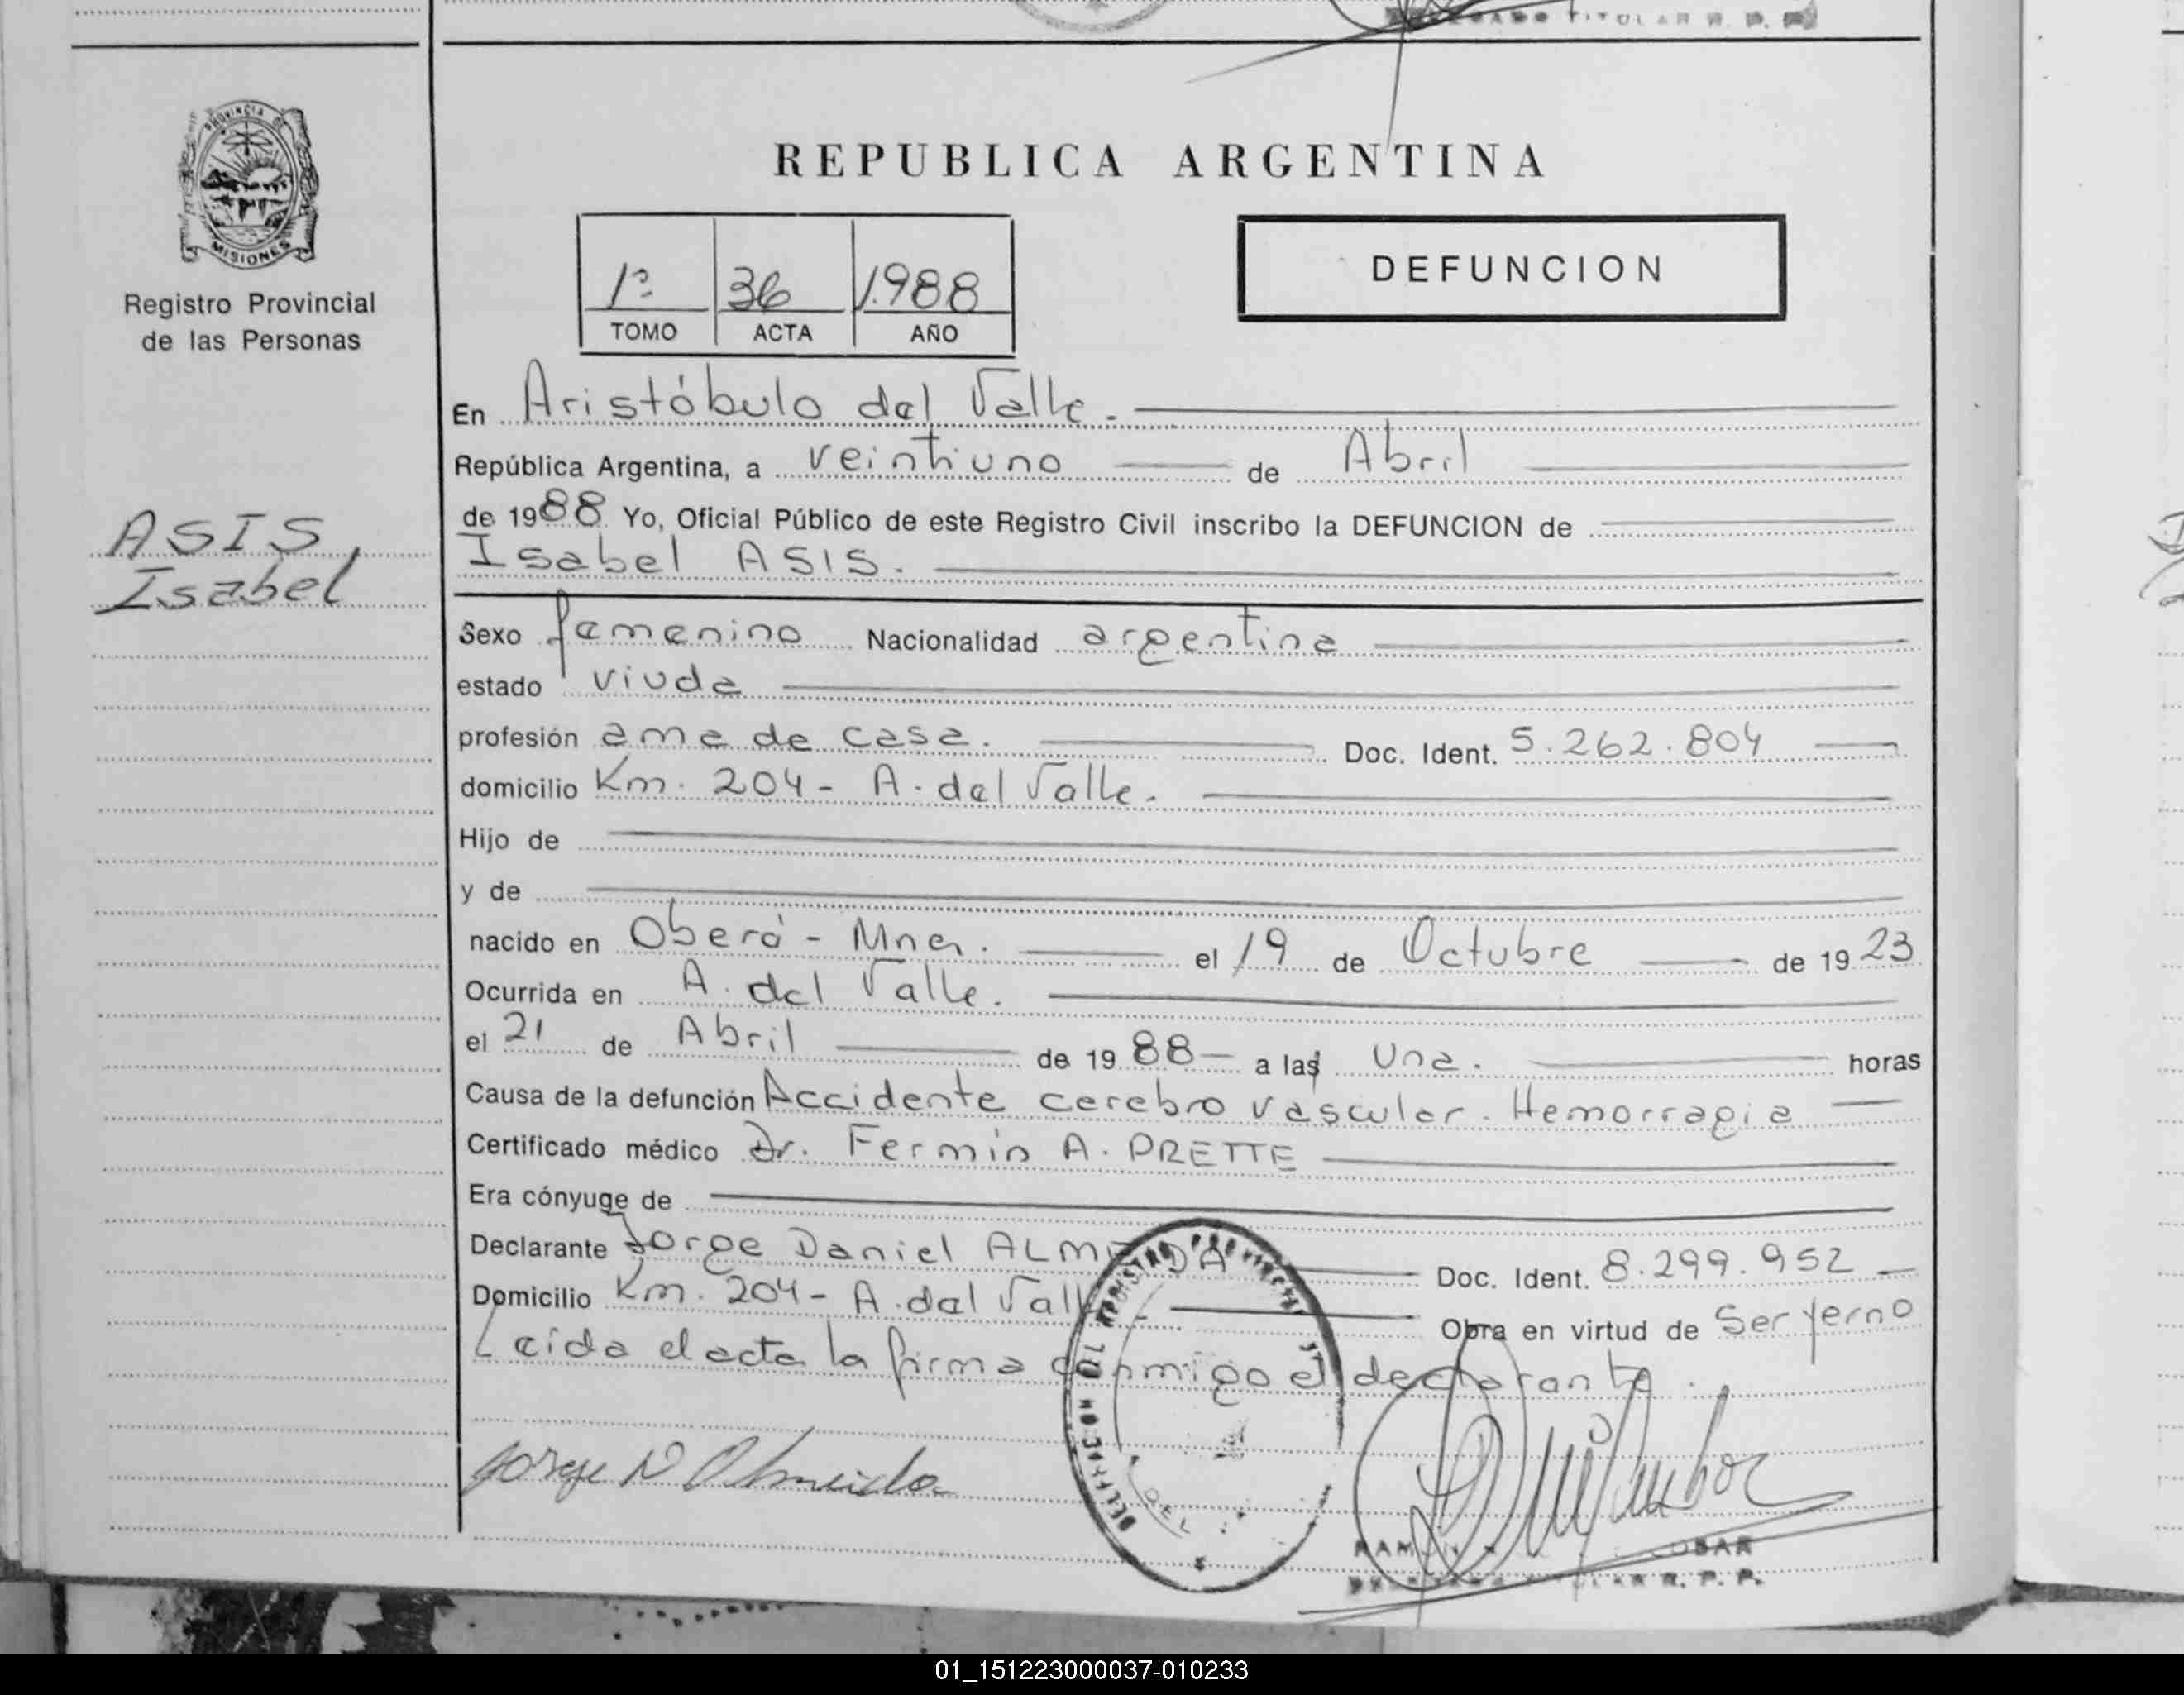 TITULAR R. P. P.
PROVINCIA DE
MISIONES
Registro Provincial
de las Personas
REPUBLICA ARGENTINA
1º 36 1.988
TOMO ACTA AÑO
DEFUNCION
En Aristóbulo del Valle.
República Argentina, a veintiuno de Abril
de 1988 Yo, Oficial Público de este Registro Civil inscribo la DEFUNCION de
Isabel ASIS.
ASIS,
Isabel
Sexo femenino Nacionalidad argentina
estado viuda
profesión ama de casa. Doc. Ident. 5.262.804
domicilio Km. 204 - A. del Valle.
Hijo de
y de
nacido en Oberá - Mnes. el 19 de Octubre de 1923
Ocurrida en A. del Valle.
el 21 de Abril de 1988 a las una. horas
Causa de la defunción Accidente cerebro vascular. Hemorragia
Certificado médico Dr. Fermín A. PRETTE
Era cónyuge de
Declarante Jorge Daniel ALMEIDA Doc. Ident. 8.299.952
Domicilio Km. 204 - A. del Valle Obra en virtud de Ser yerno
Leida el acta la firma conmigo el declarante.
Jorge D Almeida
DEL REGISTRO PROVINCIAL
DEL
R. P. P.
01_151223000037-010233